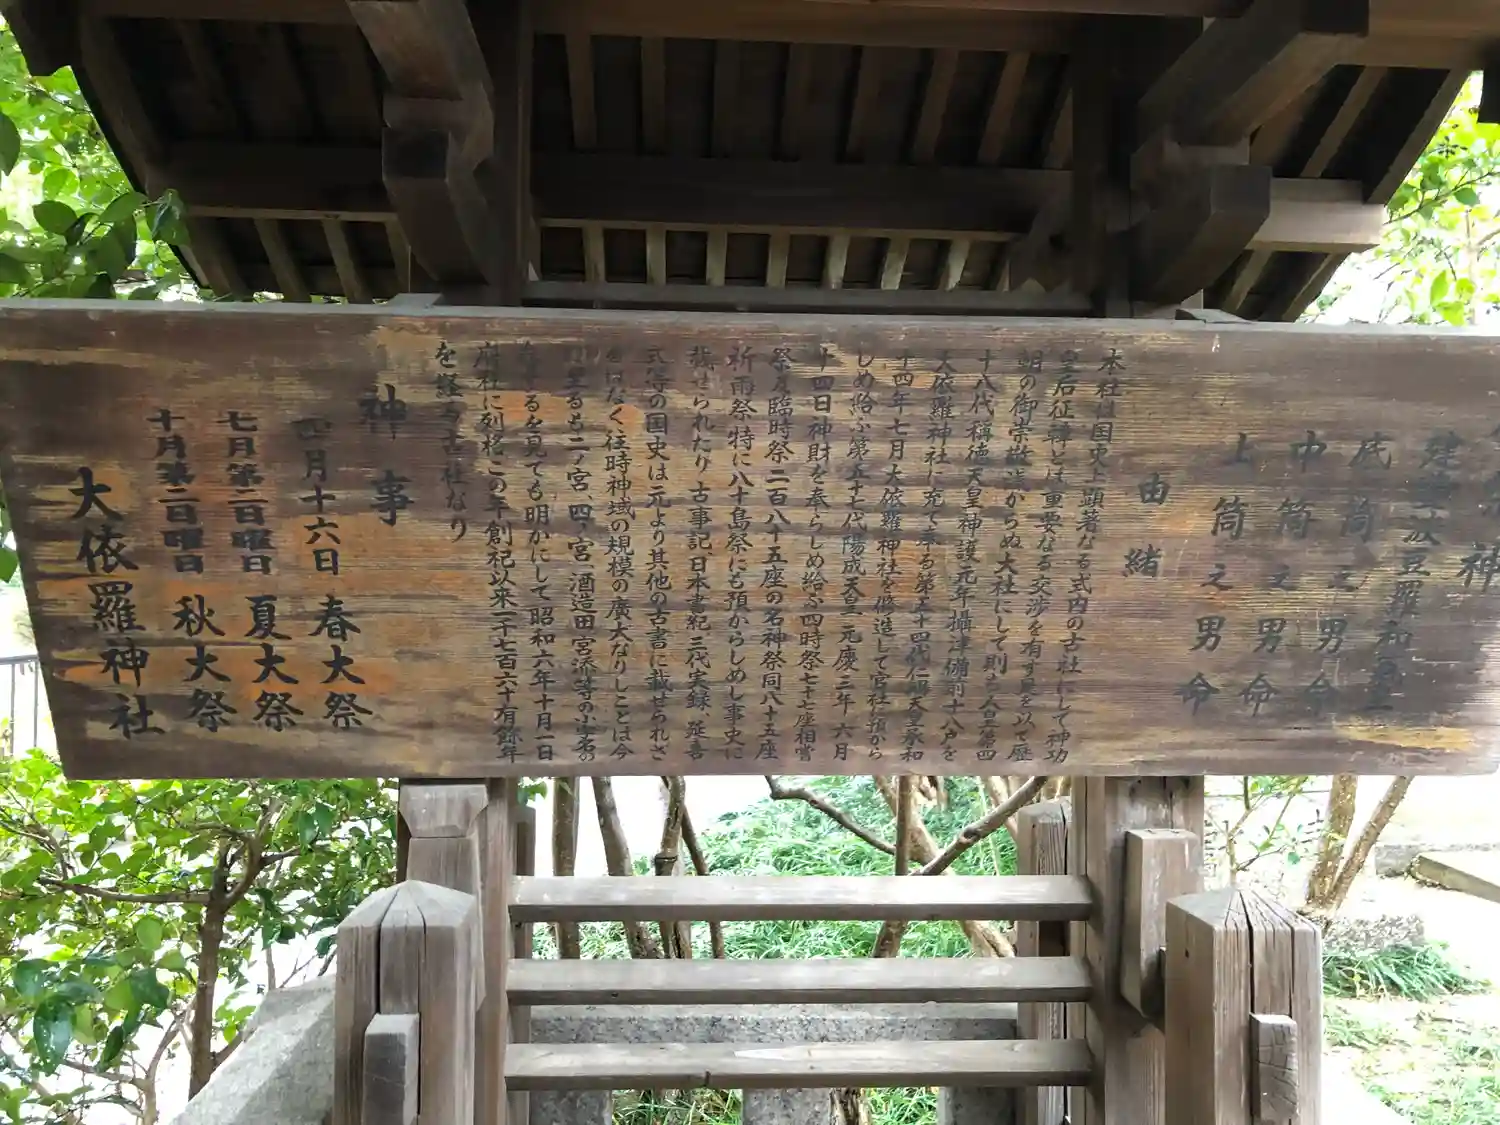 神
建 波豆羅和気
底筒之男命
中筒之男命
上筒之男命
由緒
本社は国史上顕著なる式内の古社にして神功
皇后征韓とは重要なる交渉を有す 以て歴
朝の御崇敬浅からぬ大社にして則ち人皇第四
十八代稱徳天皇神護元年攝津備前十八戸を
大依羅神社に充て奉る第五十四代仁明天皇承和
十四年七月大依羅神社を修造して官社に預から
しめ給ふ第五十七代陽成天皇 元慶三年 六月
十四日神財を奉らしめ給ふ四時祭七十七座相嘗
祭及臨時祭二百八十五座の名神祭同八十五座
祈雨祭特に八十島祭にも預からしめし事史に
載せられたり古事記日本書紀三代実録、延喜
式等の国史は元より其他の古書に載せられざ
るはなく往時神域の規模の廣大なりしことは今
るも二ノ宮、四ノ宮、酒造田宮添等の小字名の
するを見ても明かにして昭和六年十月一日
府社に列格この年創祀以来二千七百六十有餘年
を経る古社なり
神事
四月十六日 春大祭
七月第二日曜日 夏大祭
十月第二日曜日 秋大祭
大依羅神社